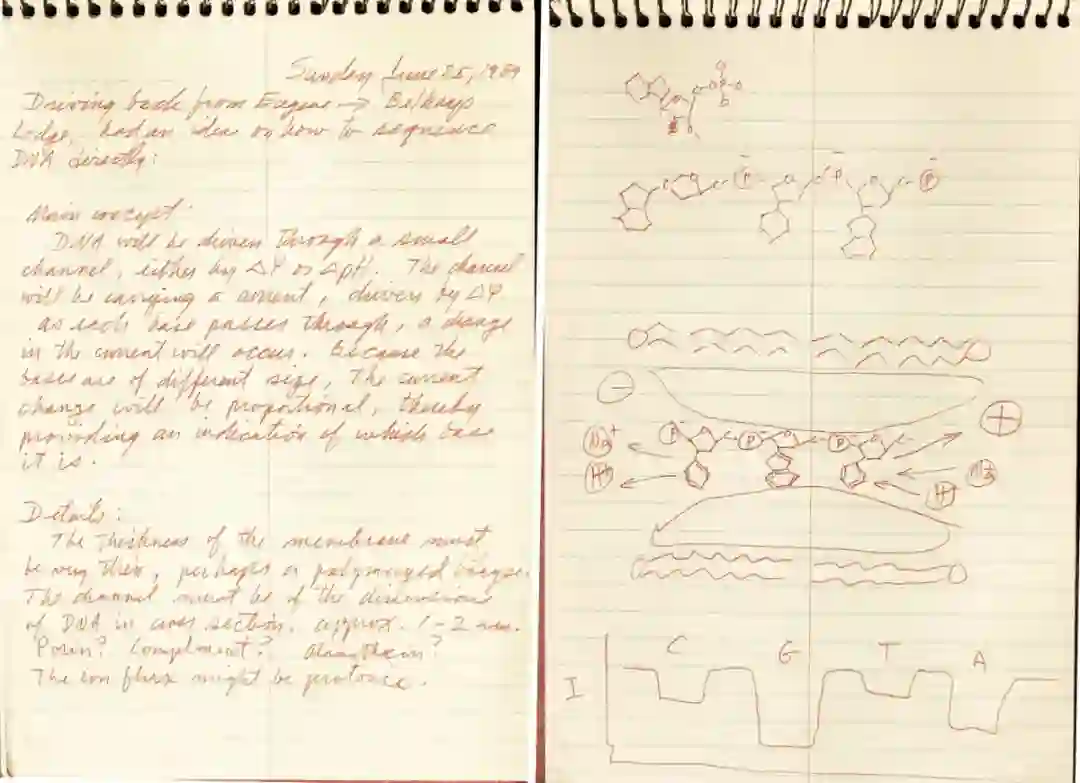 Sunday June 25, 1989
Driving back from Eugene → Belknap
Lodge, had an idea on how to sequence
DNA directly:
Main concept:
DNA will be driven through a small
channel, either by ΔΨ or ΔpH. The channel
will be carrying a current, driven by ΔΨ
as each base passes through, a change
in the current will occur. Because the
bases are of different size, the current
change will be proportional, thereby
providing an indication of which base
it is.
Details:
The thickness of the membrane must
be very thin, perhaps a polymerized
The channel must be of the dimensions
of DNA in cross section, approx. 1-2 nm.
Porin? Complement? Alamethicin?
The ion flux might be protonic.
P P P
- +
Na+ P P P
H+ Na+
H+
C G T A
I